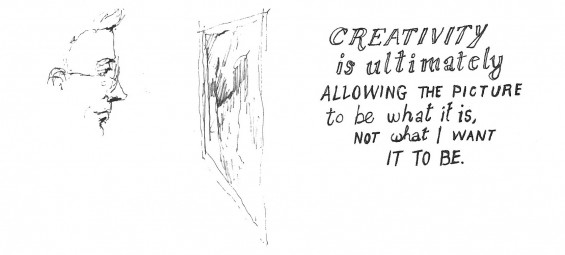 CREATIVITY
is ultimately
ALLOWING THE PICTURE
to be what it is,
NOT what I WANT
IT TO BE.